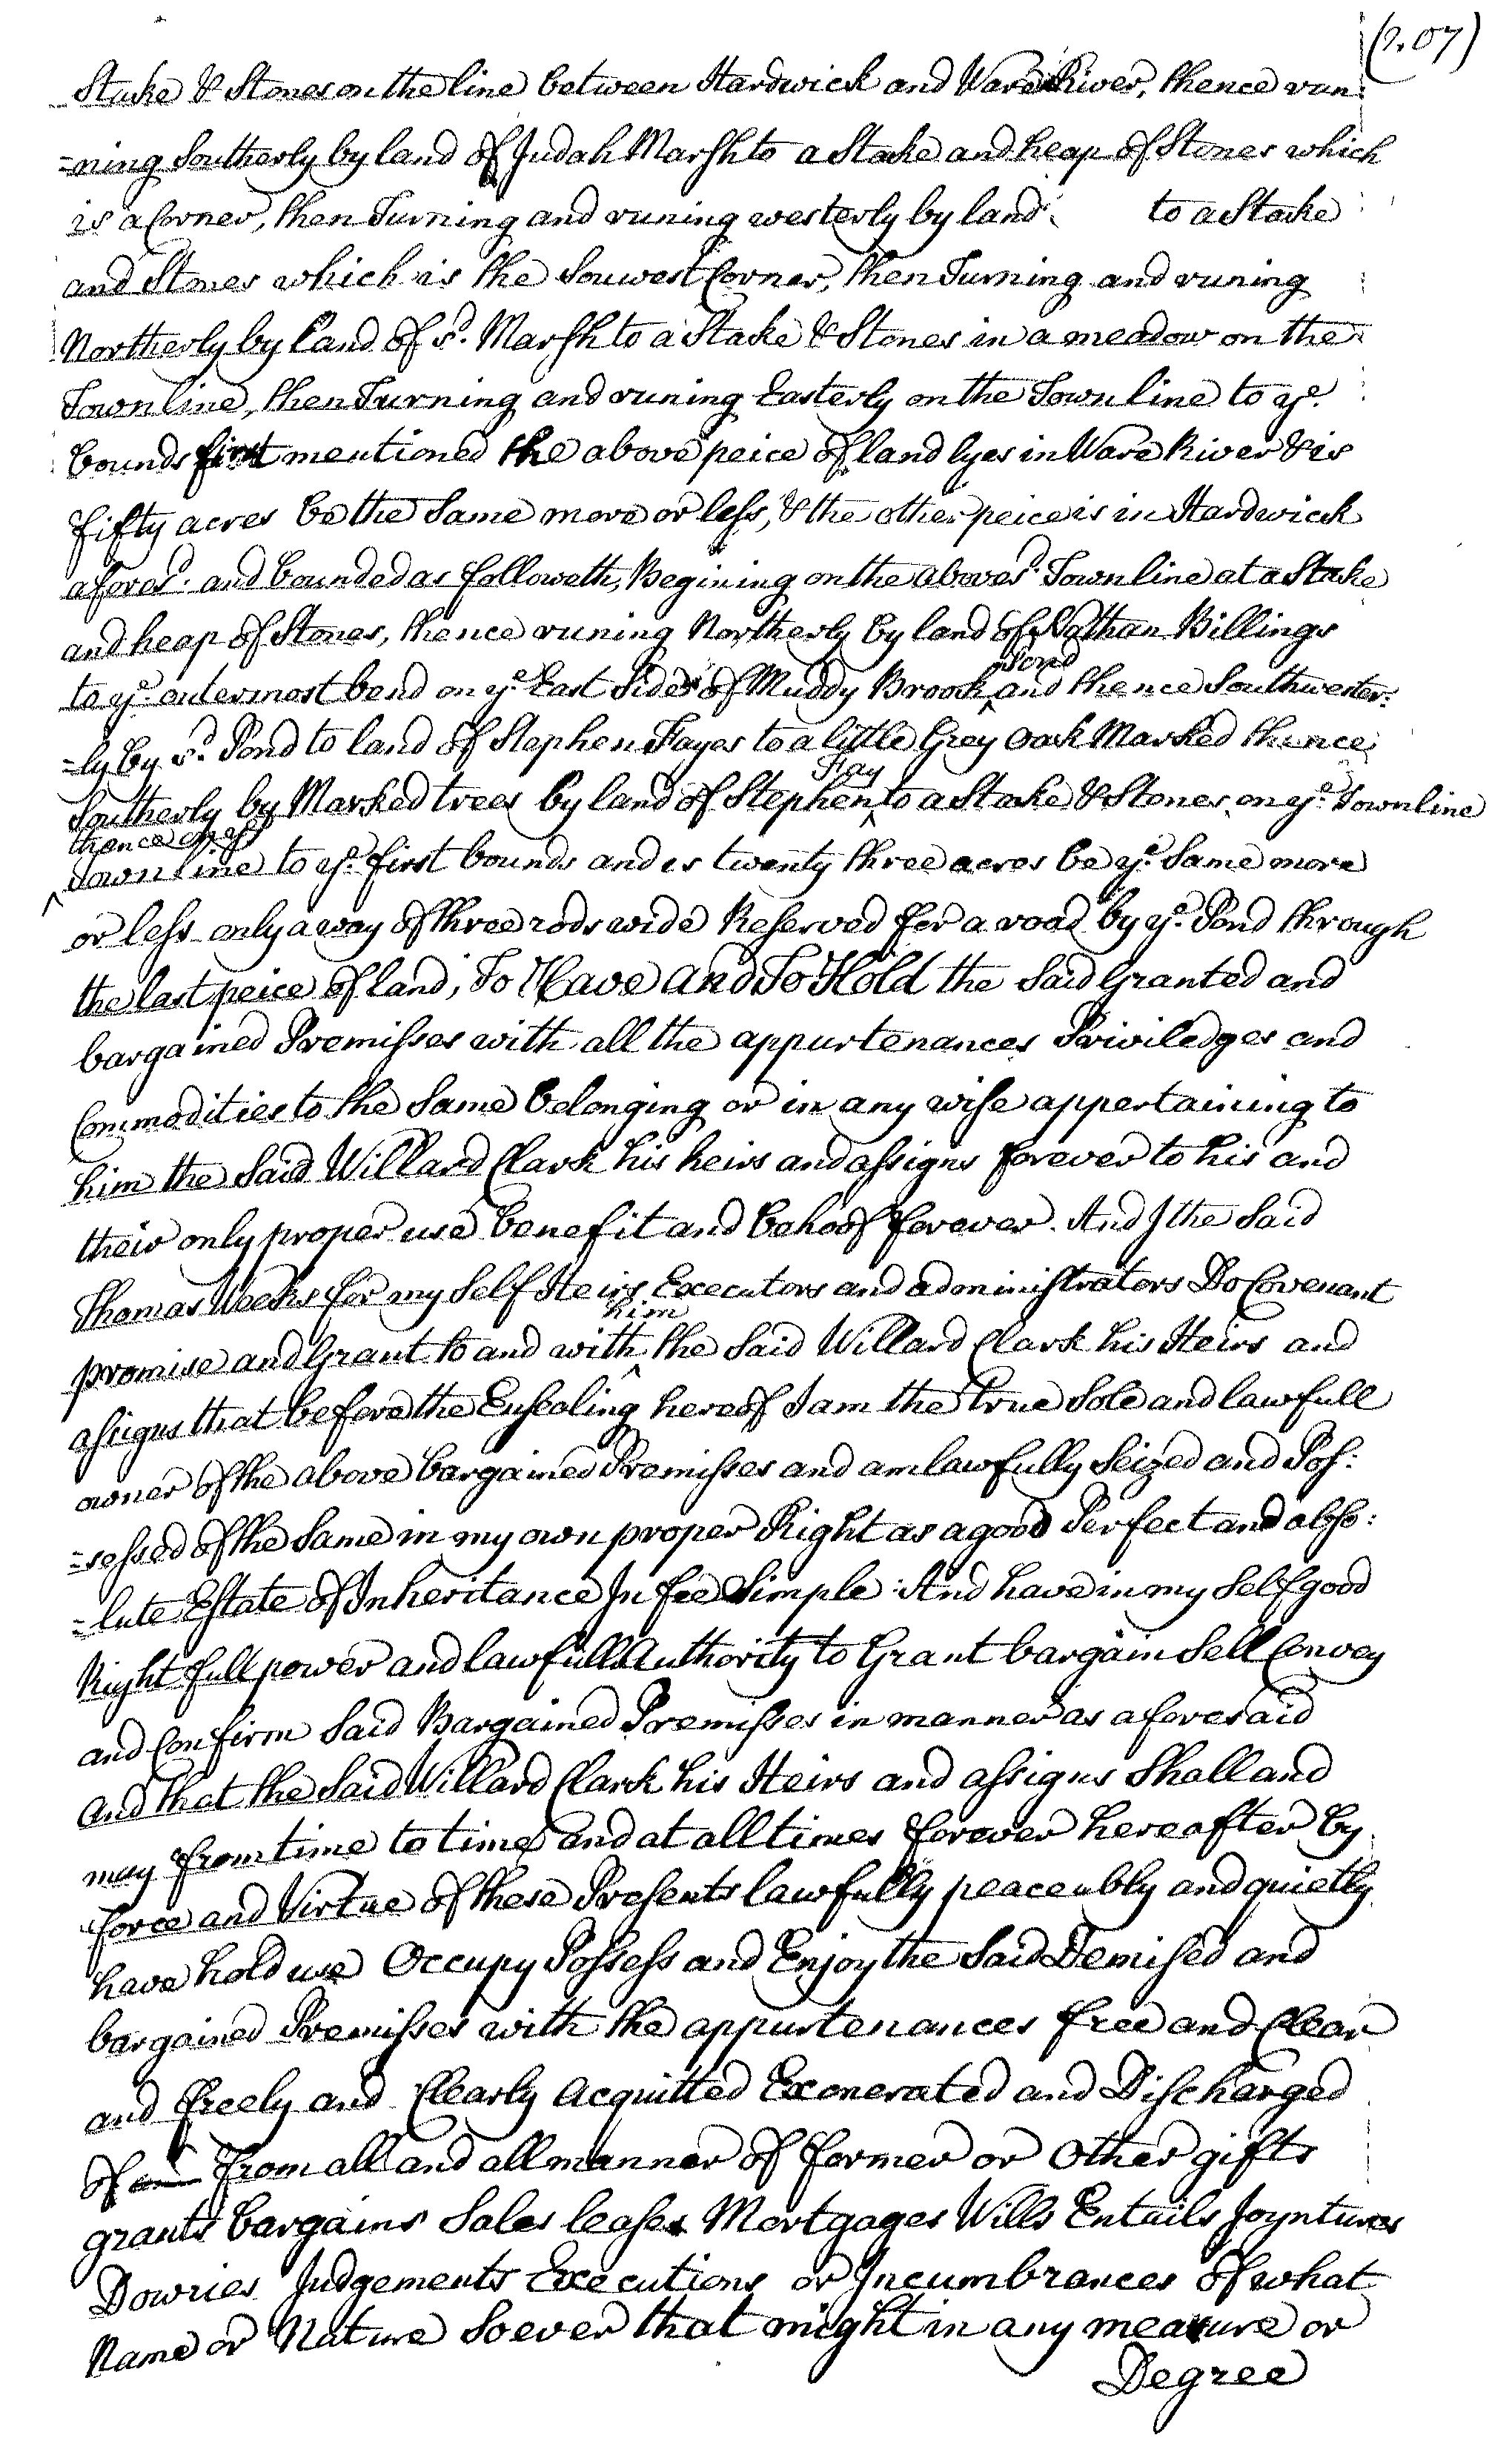 (207)
Stake & Stones on the line between Hardwick and Ware River, thence run:
=ning Southerly by land of Judah Marsh to a Stake and heap of Stones which
is a Corner, then Turning and runing westerly by land to a Stake
and Stones which is the Souwest Corner, then Turning and runing
Northerly by land of sd. Marsh to a Stake & Stones in a meadow on the
Town line, then Turning and runing Easterly on the Town line to ye.
bounds first mentioned the above peice of land lyes in Ware River & is
fifty acres be the Same more or less, & the other peice is in Hardwick
aforesd. and bounded as followeth, Begining on the abovesd. Town line at a Stake
and heap of Stones, thence runing Northerly by land of Nathan Billings
to ye. outermost bend on ye. East Side of Muddy Brook ^Pond and thence Southwester:
=ly by sd. Pond to land of Stephen Fayes to a little Grey Oack Marked thence
Southerly by Marked trees by land of Stephen ^Fay to a Stake & Stones on ye. Town line
^thence on sd
Town line to ye. first bounds and is twenty three acres be ye. Same more
or less only a way of three rods wide Reserved for a road by ye. Pond through
the last peice of land, To Have and To Hold the Said Granted and
bargained Premisses with all the appurtenances Priviledges and
Commodities to the Same belonging or in any wise appertaining to
him the Said Willard Clark his heirs and assigns forever to his and
their only proper use benefit and behoof forever. And I the Said
Thomas Weeks for my Self Heirs Executors and administrators Do Covenant
promise and Grant to and with ^him the Said Willard Clark his Heirs and
assigns that before the Ensealing hereof I am the true Sole and lawfull
owner of the above bargained Premisses and am lawfully Seized and Pos:
=sessed of the Same in my own proper Right as a good Perfect and abso:
=lute Estate of Inheritance In fee Simple: And have in my Self good
Right full power and lawfull Authority to Grant bargain Sell Convey
and Confirm Said Bargained Premisses in manner as aforesaid
and that the Said Willard Clark his Heirs and assigns Shall and
may from time to time and at all times forever hereafter by
force and Virtue of these Presents lawfully peaceably and quietly
have hold use Occupy Possess and Enjoy the Said Demised and
bargained Premisses with the appurtenances free and Clear
and freely and Clearly Acquitted Exonerated and Discharged
of from all and all manner of former or Other gifts
grants bargains Sales leases Mortgages Wills Entails Joyntures
Dowries Judgements Executions or Incumbrances of what
Name or Nature Soever that might in any measure or
Degree